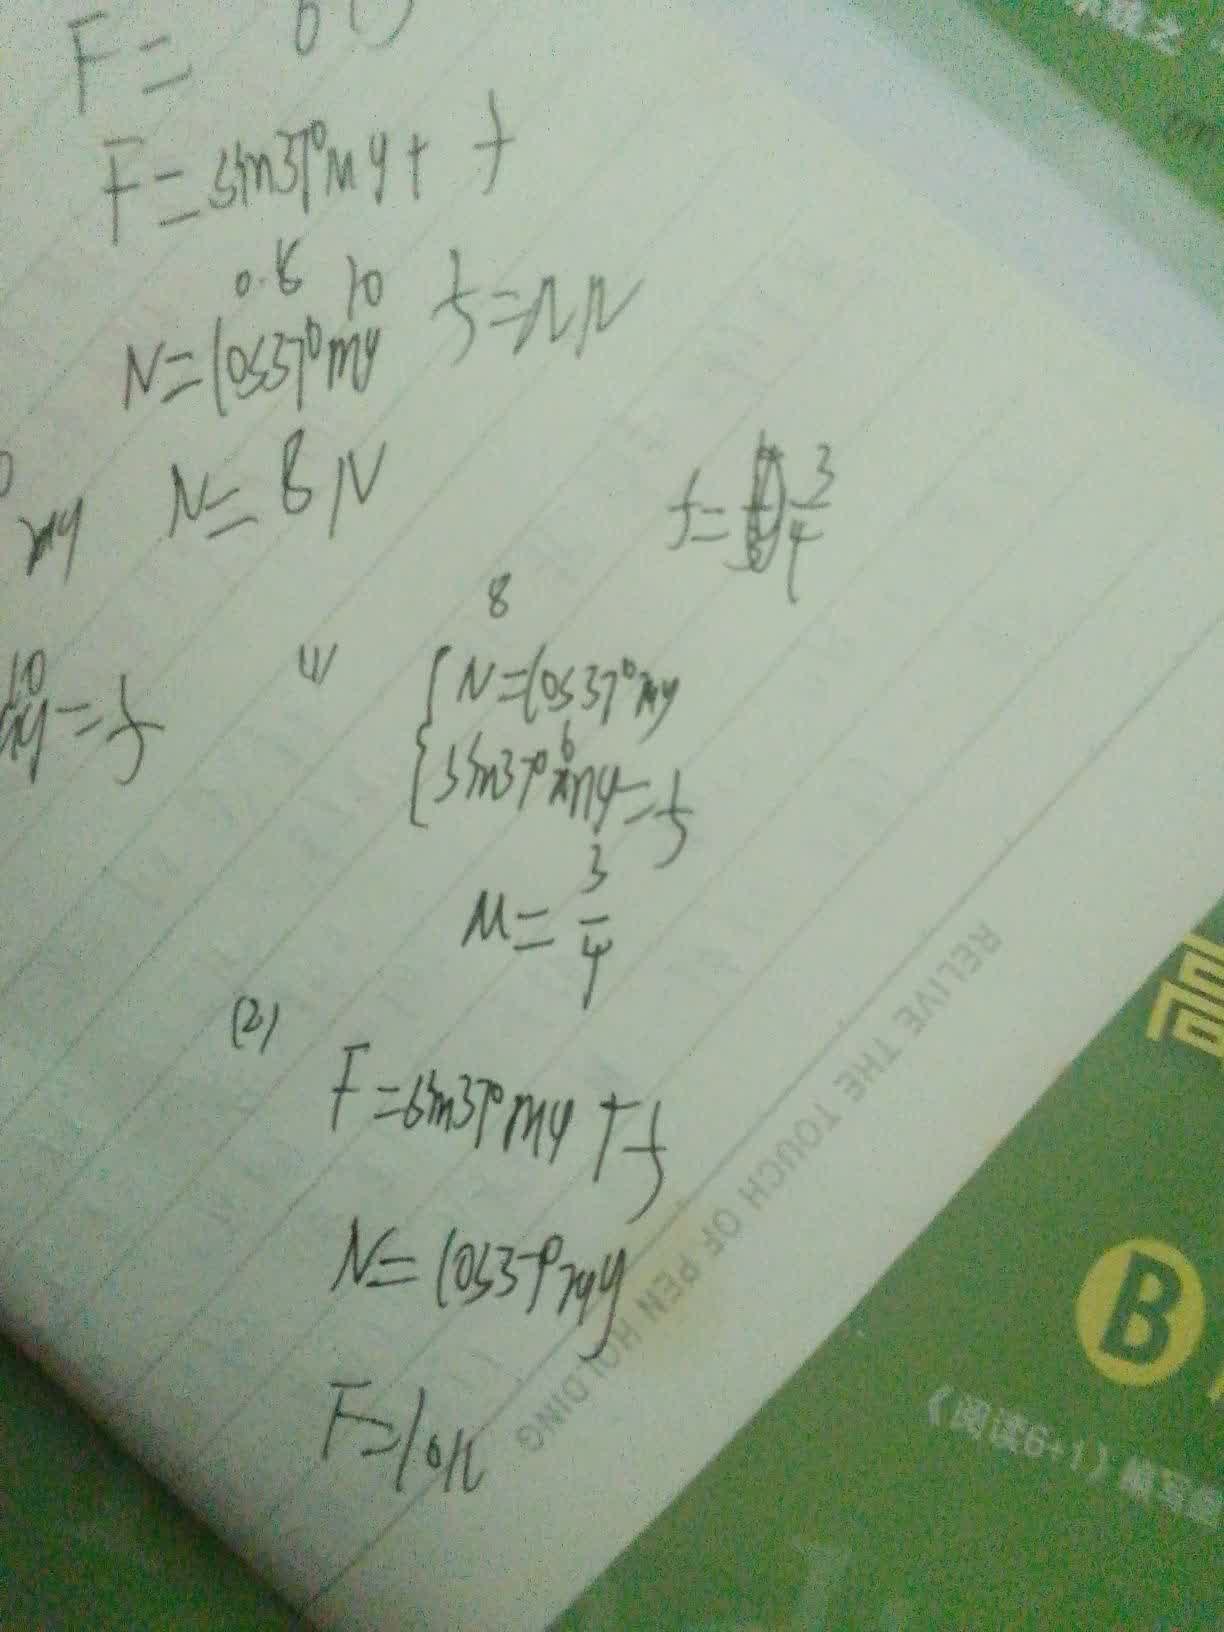 F =
F = sin37°mg + f
0.8 10
N = cos37°mg f = μN
mg N = 8N
f = 3/4
8
10
(1) { N = cos37°mg
mg = f
6
sin37°mg = f
μ = 3/4
(2)
F = sin37°mg + f
N = cos37°mg
F = 10N
RELIVE THE TOUCH OF PEN HOLDING
B
《阅读6+1》编写